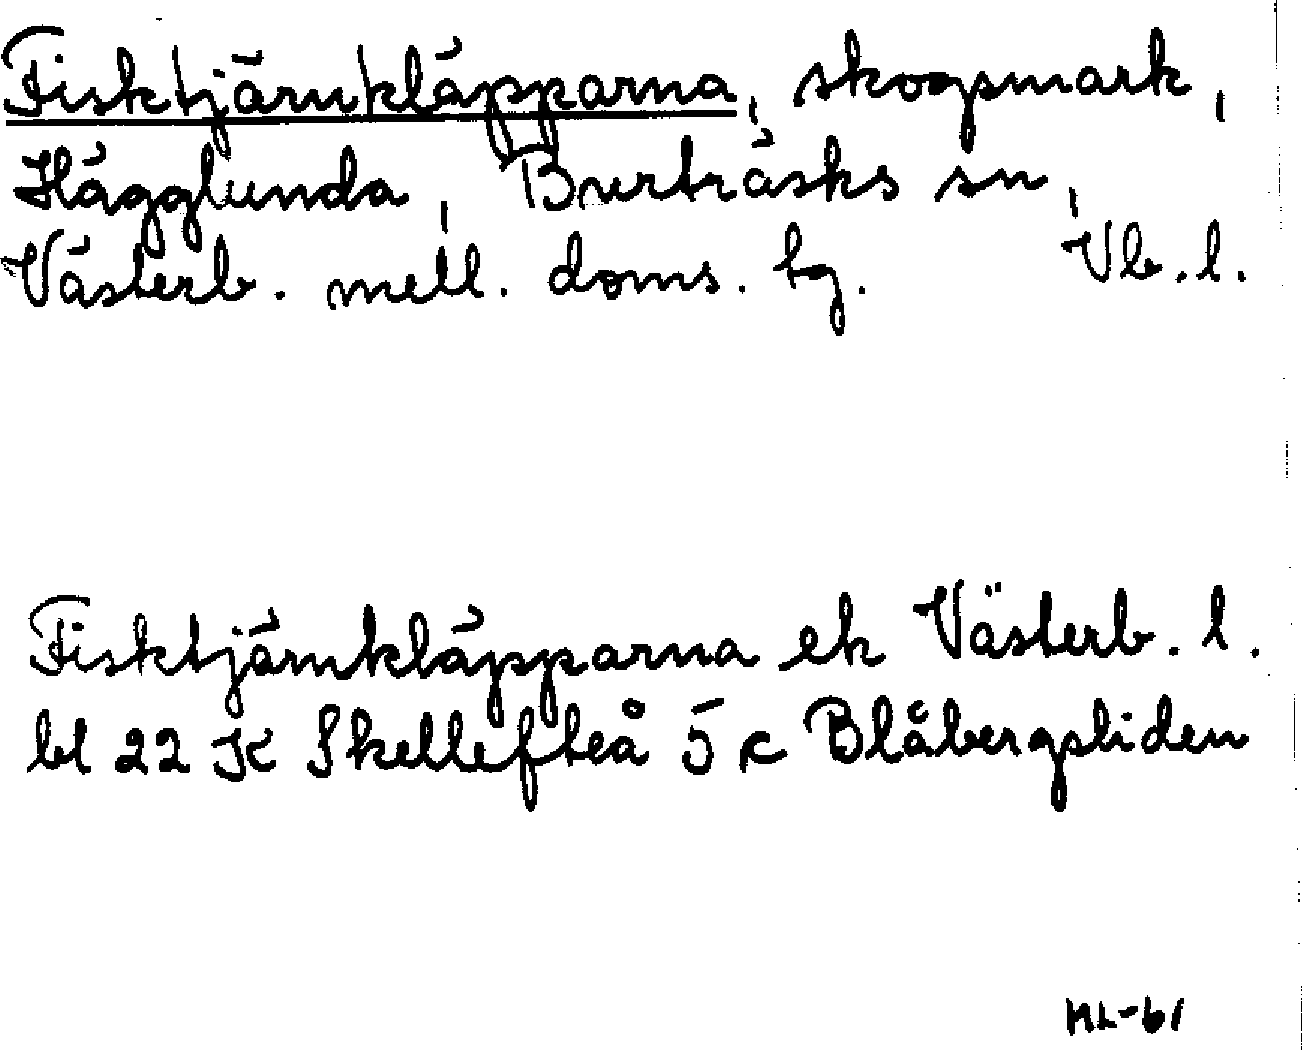 Fisk|tjärn|kläpparna, skogsmark,
Hägglunda, Burträsks sn,
Västerb. mell. doms. tg. Vb. l.
Fisktjärnkläpparna ek Västerb. l.
bl 22 K Skellefteå 5 c Blåbergsliden
ML-61